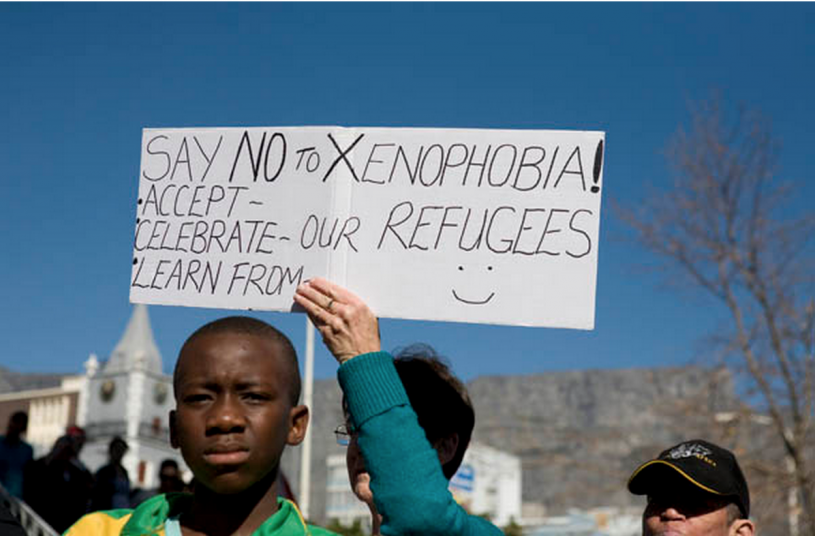 SAY NO TO XENOPHOBIA!
• ACCEPT~
• CELEBRATE~ OUR REFUGEES
• LEARN FROM